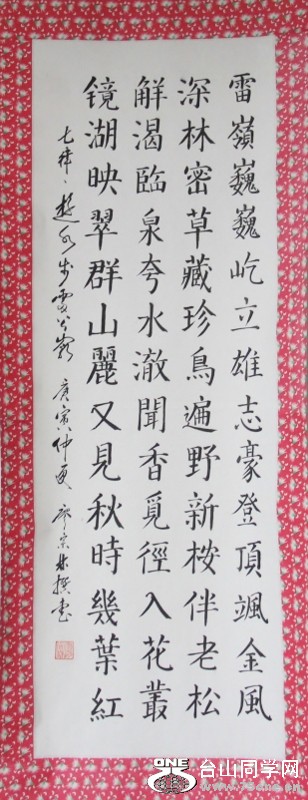 雷嶺巍巍屹立雄志豪登頂颯金風
深林密草藏珍鳥遍野新桉伴老松
觧渴臨泉夸水澈聞香覓徑入花叢
镜湖映翠群山麗又見秋時幾葉紅
七律、遊 步雲 庚寅仲夏 廖 林撰书
ONE 台山同学网